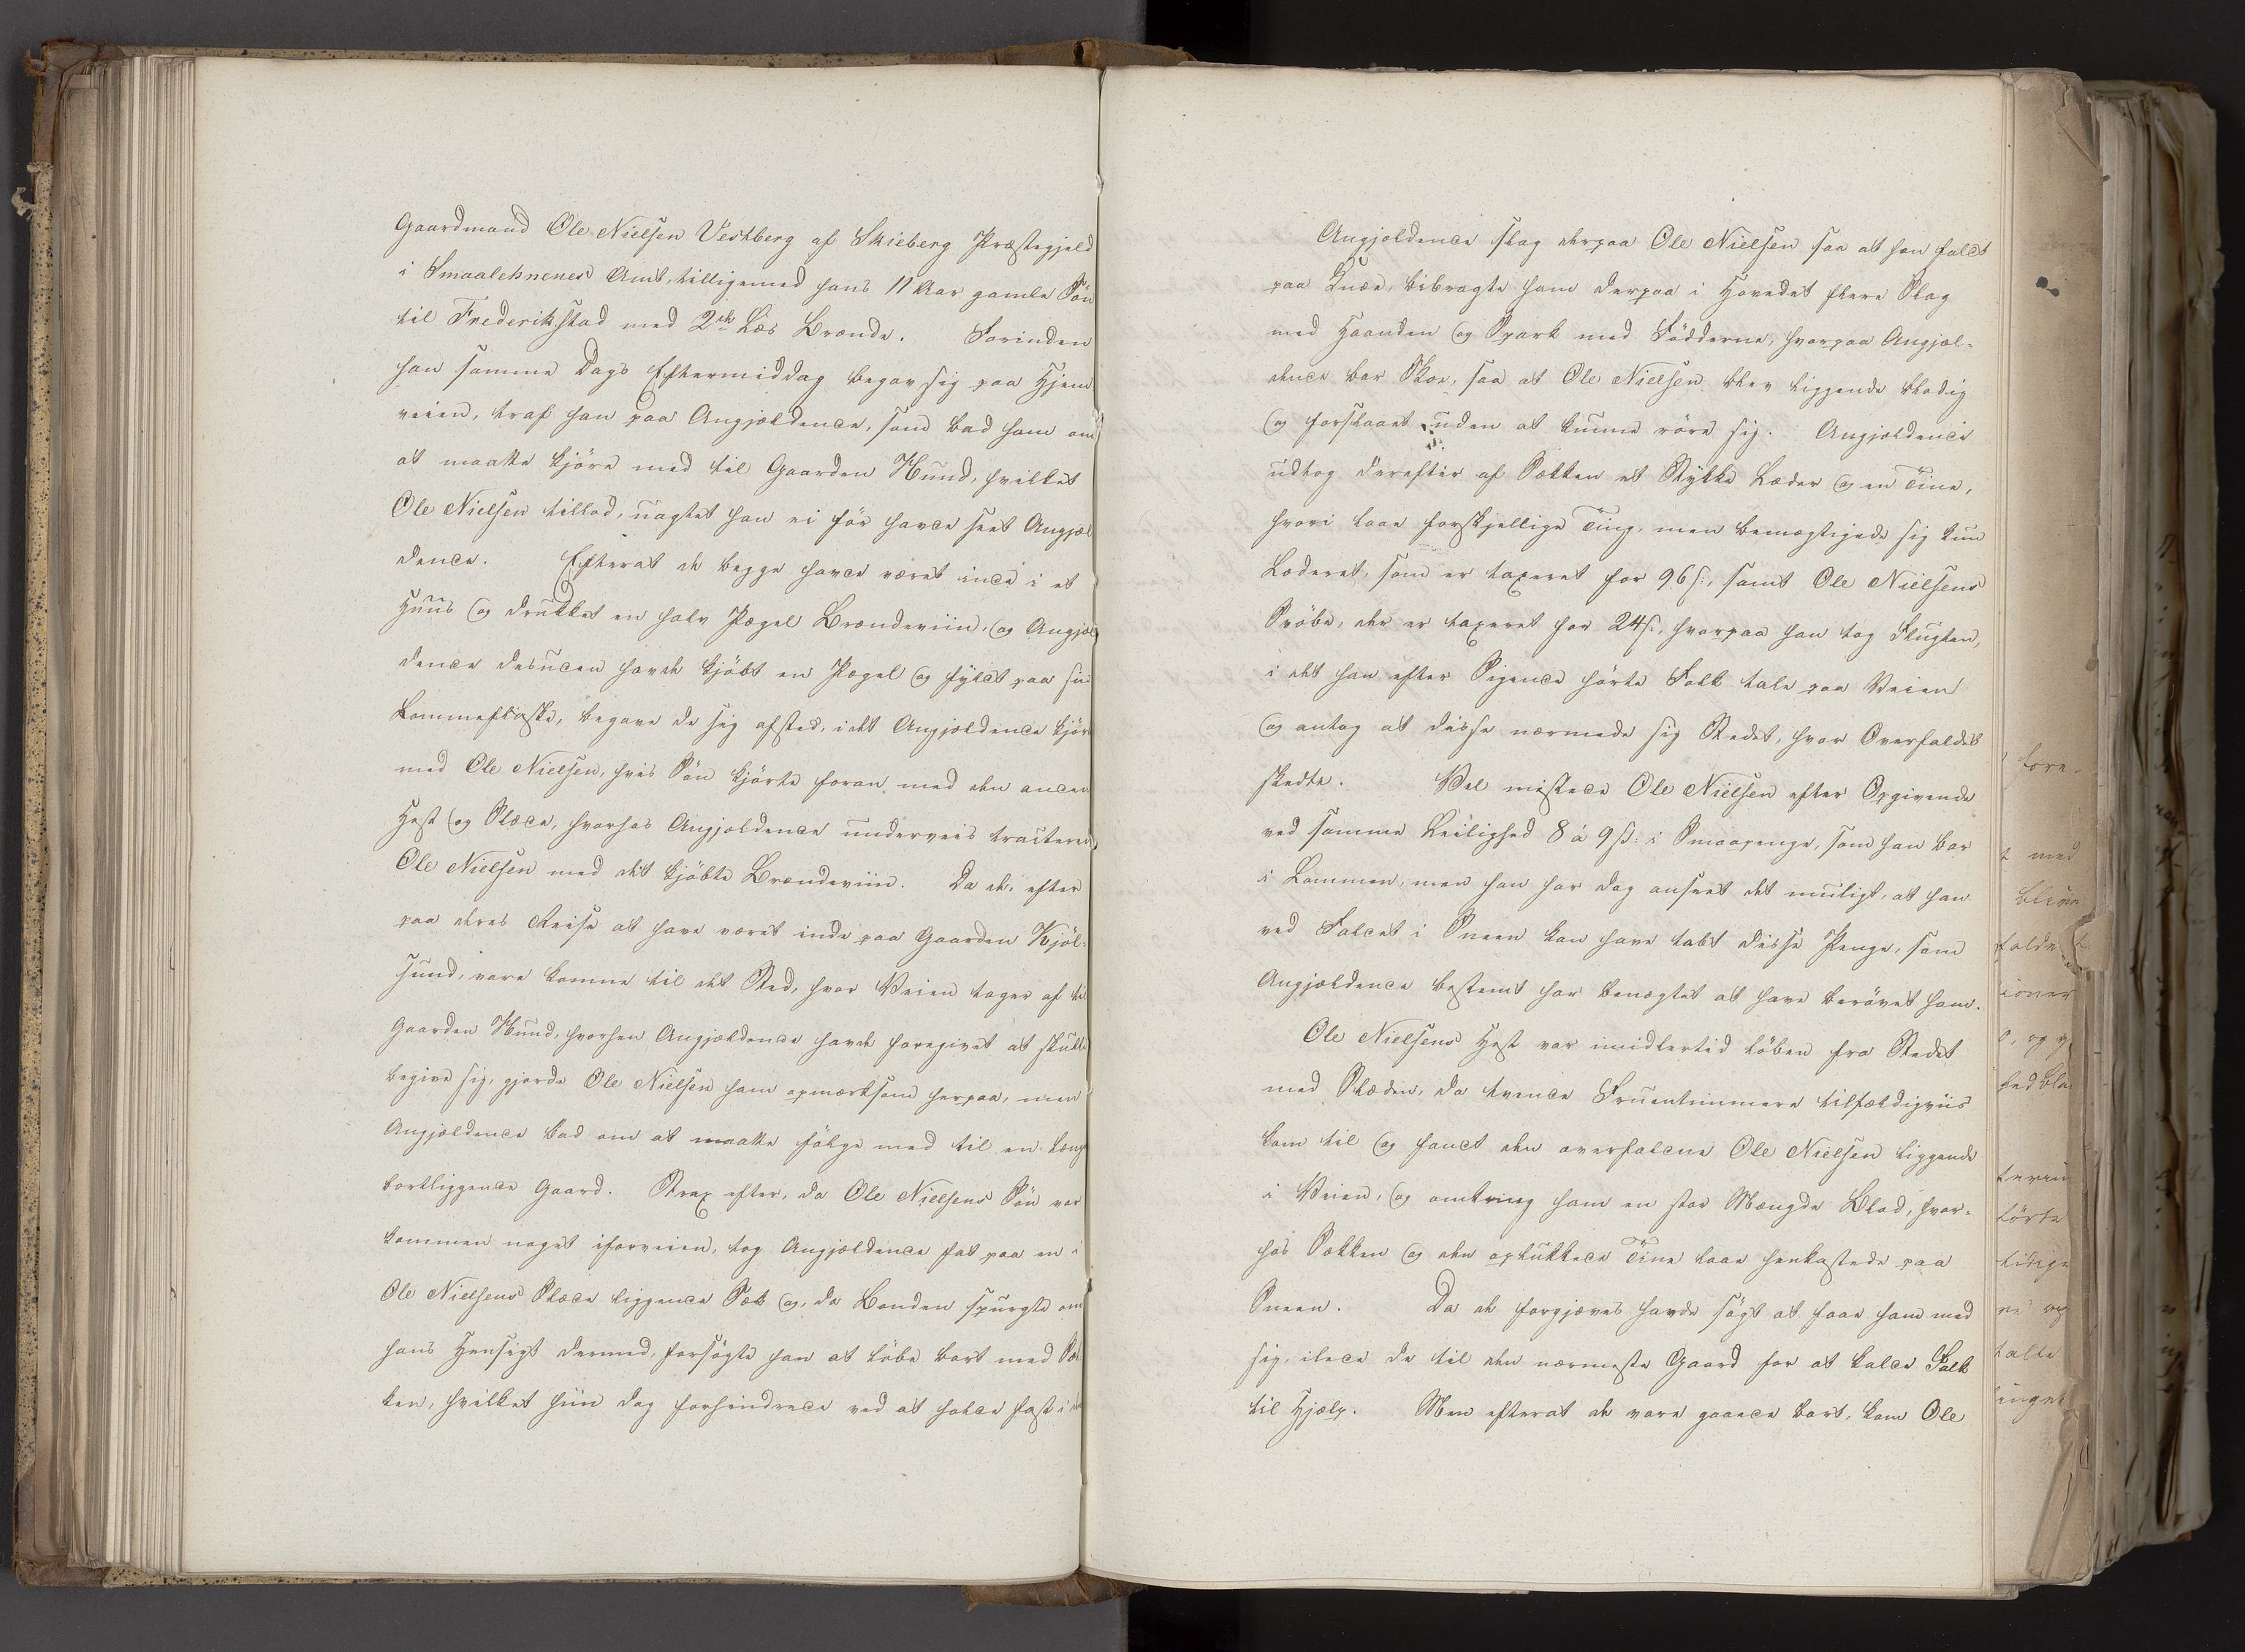 Gaardmand Ole Nielsen Vestberg af Skieberg Præstegjeld
i Smaalehnenes Amt, tilligemed hans 11 Aar gamle Søn
til Frederikstad med 2de Læs Brænde. Forinden
han samme Dags Eftermiddag begav sig paa Hjem
veien, traf han paa Angjældende, som bad ham om
at maatte kjøre med til Gaarden Hund, hvilket
Ole Nielsen tillod, uagtet han ei før havde seet Angjæl
dende. Efterat de begge havde været inde i et
Huus og drukket en halv Pægel Brændeviin, og Angjæl
dende desuden havde kjøbt en Pægel og fyldt paa sin
Lommeflaske, begave de sig afsted, idet Angjældende kjørte
med Ole Nielsen, hvis Søn kjørte foran med den anden
Hest og Slæde, hvorhos Angjældende underveis tracterede
Ole Nielsen med det kjøbte Brændeviin. Da de, efter
paa deres Reise at have været inde paa Gaarden Kjøl-
sund, vare komne til det Sted, hvor Veien tager af til
Gaarden Hund, hvorhen Angjældende havde foregivet at skulle
begive sig, gjorde Ole Nielsen ham opmærksom herpaa, men
Angjældende bad om at maatte følge med til en læng
bortliggende Gaard. Strax efter, da Ole Nielsens Søn var
kommen noget iforveien, tog Angjældende fat paa en i
Ole Nielsens Slæde liggende Sæk og, da Bonden spurgte om
hans Hensigt dermed, forsøgte han at løbe bort med Sæk
ken, hvilket hiin dog forhindrede ved at holde fast i den
Angjældende slog derpaa Ole Nielsen saa at han faldt
paa Knæe, bibragte ham derpaa i Hovedet flere Slag
med Haanden og Spark med Fødderne, hvorpaa Angjæl-
dende bar Skoe, saa at Ole Nielsen blev liggende blodig
og forslaaet uden at kunne røre sig. Angjældende
udtog derefter af Sækken et Stykke Læder og en Tine,
hvori laae forskjellige Ting, men bemægtigede sig kun
Læderet, som er taxeret for 96 ß, samt Ole Nielsens
Svøbe, der er taxeret for 24 ß, hvorpaa han tog Flugten,
i det han efter Sigende hørte Folk tale paa Veien
og antog at disse nærmede sig Stedet, hvor Overfaldet
skedte. Vel mistede Ole Nielsen efter Opgivende
ved samme Leilighed 8 á 9 ß: i Smaapenge, som han bar
i Lommen, men han har dog anseet det muligt, at han
ved Faldet i Sneen kan have tabt disse Penge, som
Angjældende bestemt har benægtet at have berøvet ham.
Ole Nielsens Hest var imidlertid løben fra Stedet
med Slæden, da tvende Fruentimmere tilfældigviis
kom til og fandt den overfaldne Ole Nielsen liggende
i Veien, og omkring ham en stor Mængde Blod, hvor-
hos Sækken og den oplukkede Tine laae henkastede paa
Sneen. Da de forgjæves havde søgt at faae ham med
sig, ilede de til den nærmeste Gaard for at kalde Folk
til Hjælp. Men efterat de vare gaaede bort, kom Ole